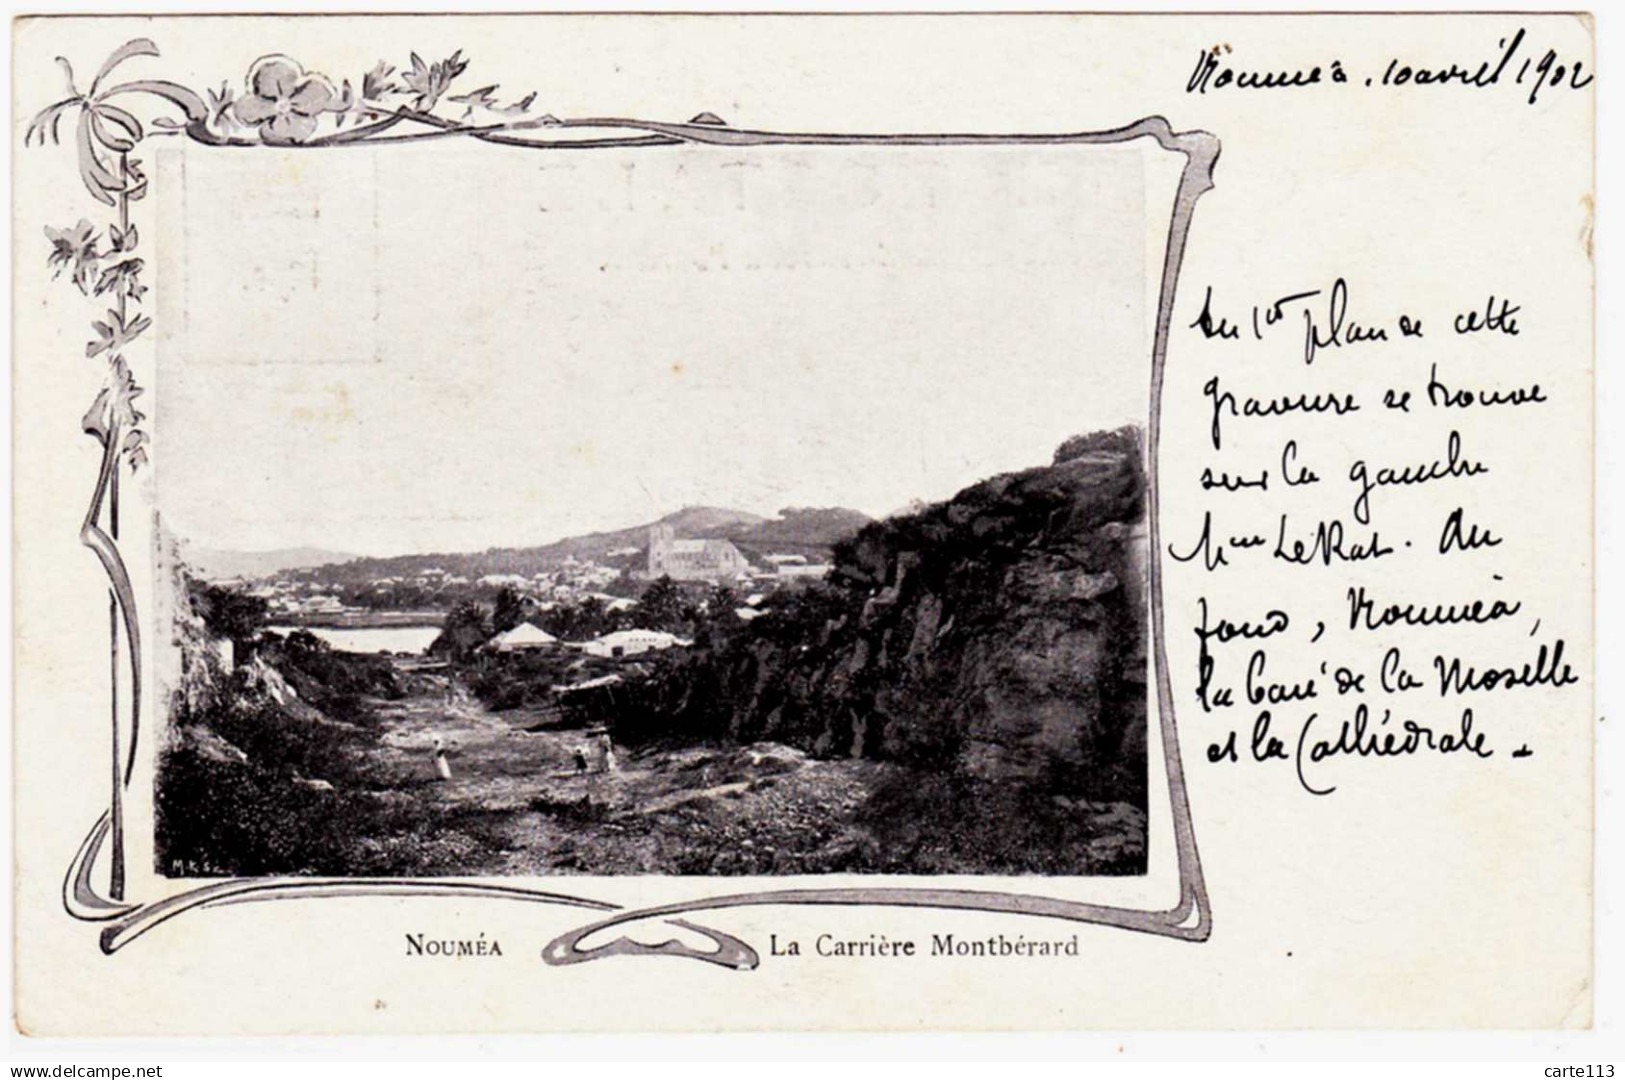 Nouméa, 10 avril 1902
Au 1er plan de cette
gravure se trouve
sur la gauche
Mme LeRat. Au
fond, Nouméa,
la baie de la Moselle
et la Cathédrale.
M.K.S.
NOUMÉA La Carrière Montbérard
www.delcampe.net carte113